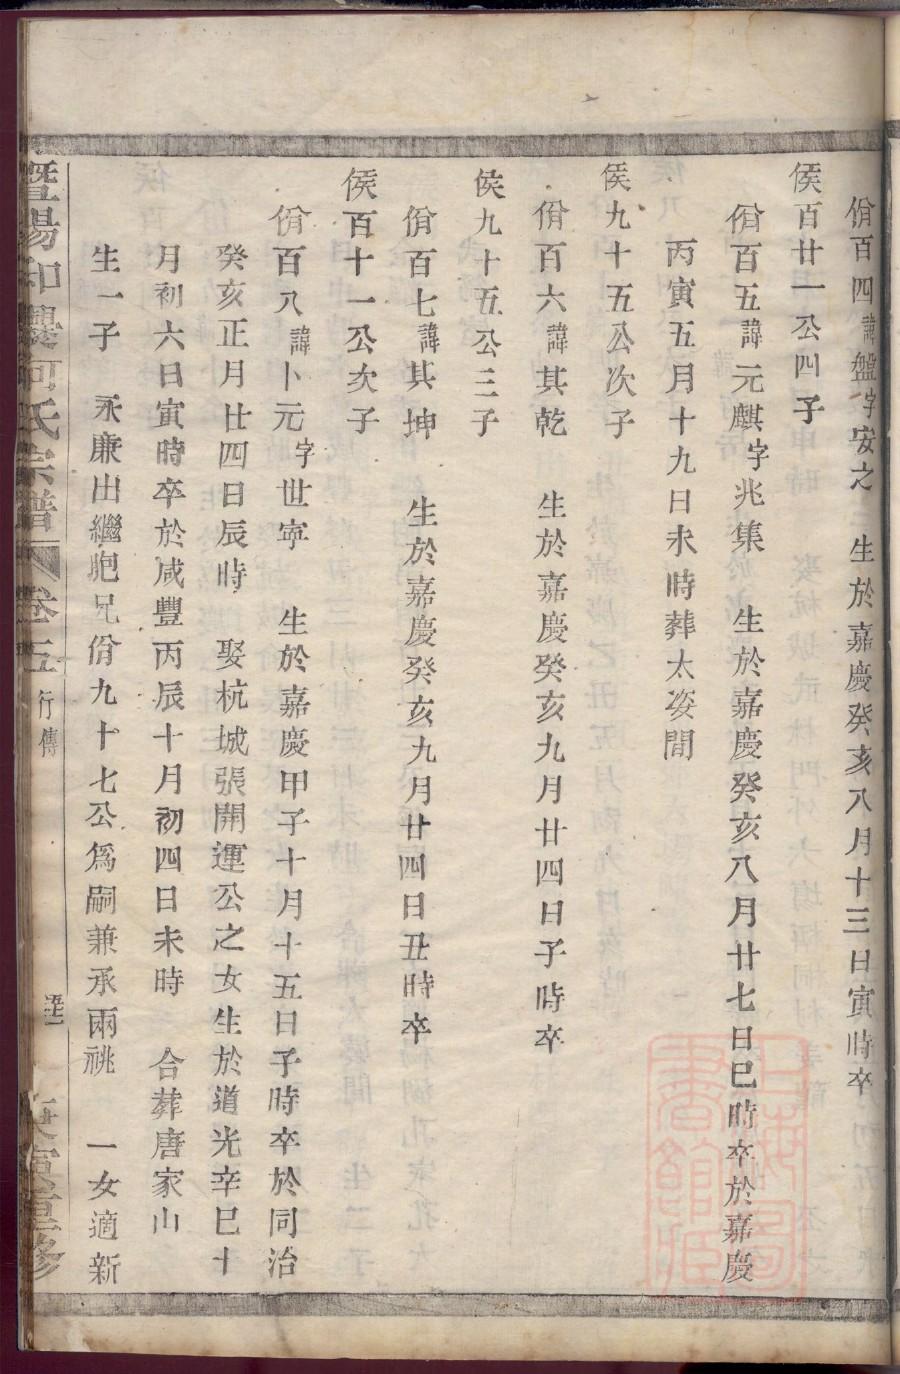 佾百四諱盤字安之 生於嘉慶癸亥八月十三日寅時卒
侯百廿一公四子
佾百五諱元麒字兆集 生於嘉慶癸亥八月廿七日巳時卒於嘉慶
丙寅五月十九日未時葬太婆間
侯九十五公次子
佾百六諱其乾 生於嘉慶癸亥九月廿四日子時卒
侯九十五公三子
佾百七諱其坤 生於嘉慶癸亥九月廿四日丑時卒
侯百十一公次子
佾百八諱卜元字世寧 生於嘉慶甲子十月十五日子時卒於同治
癸亥正月廿四日辰時 娶杭城張開運公之女生於道光辛巳十
月初六日寅時卒於咸豐丙辰十月初四日未時 合葬唐家山
生一子 永廉出繼胞兄佾九十七公爲嗣兼承兩祧 一女適新
暨陽 何氏宗譜 卷五 行傳 寅重修
上海圖書館